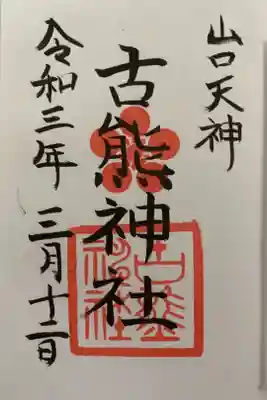 山口天神
古熊神社
令和三年 三月十二日
古熊
神社